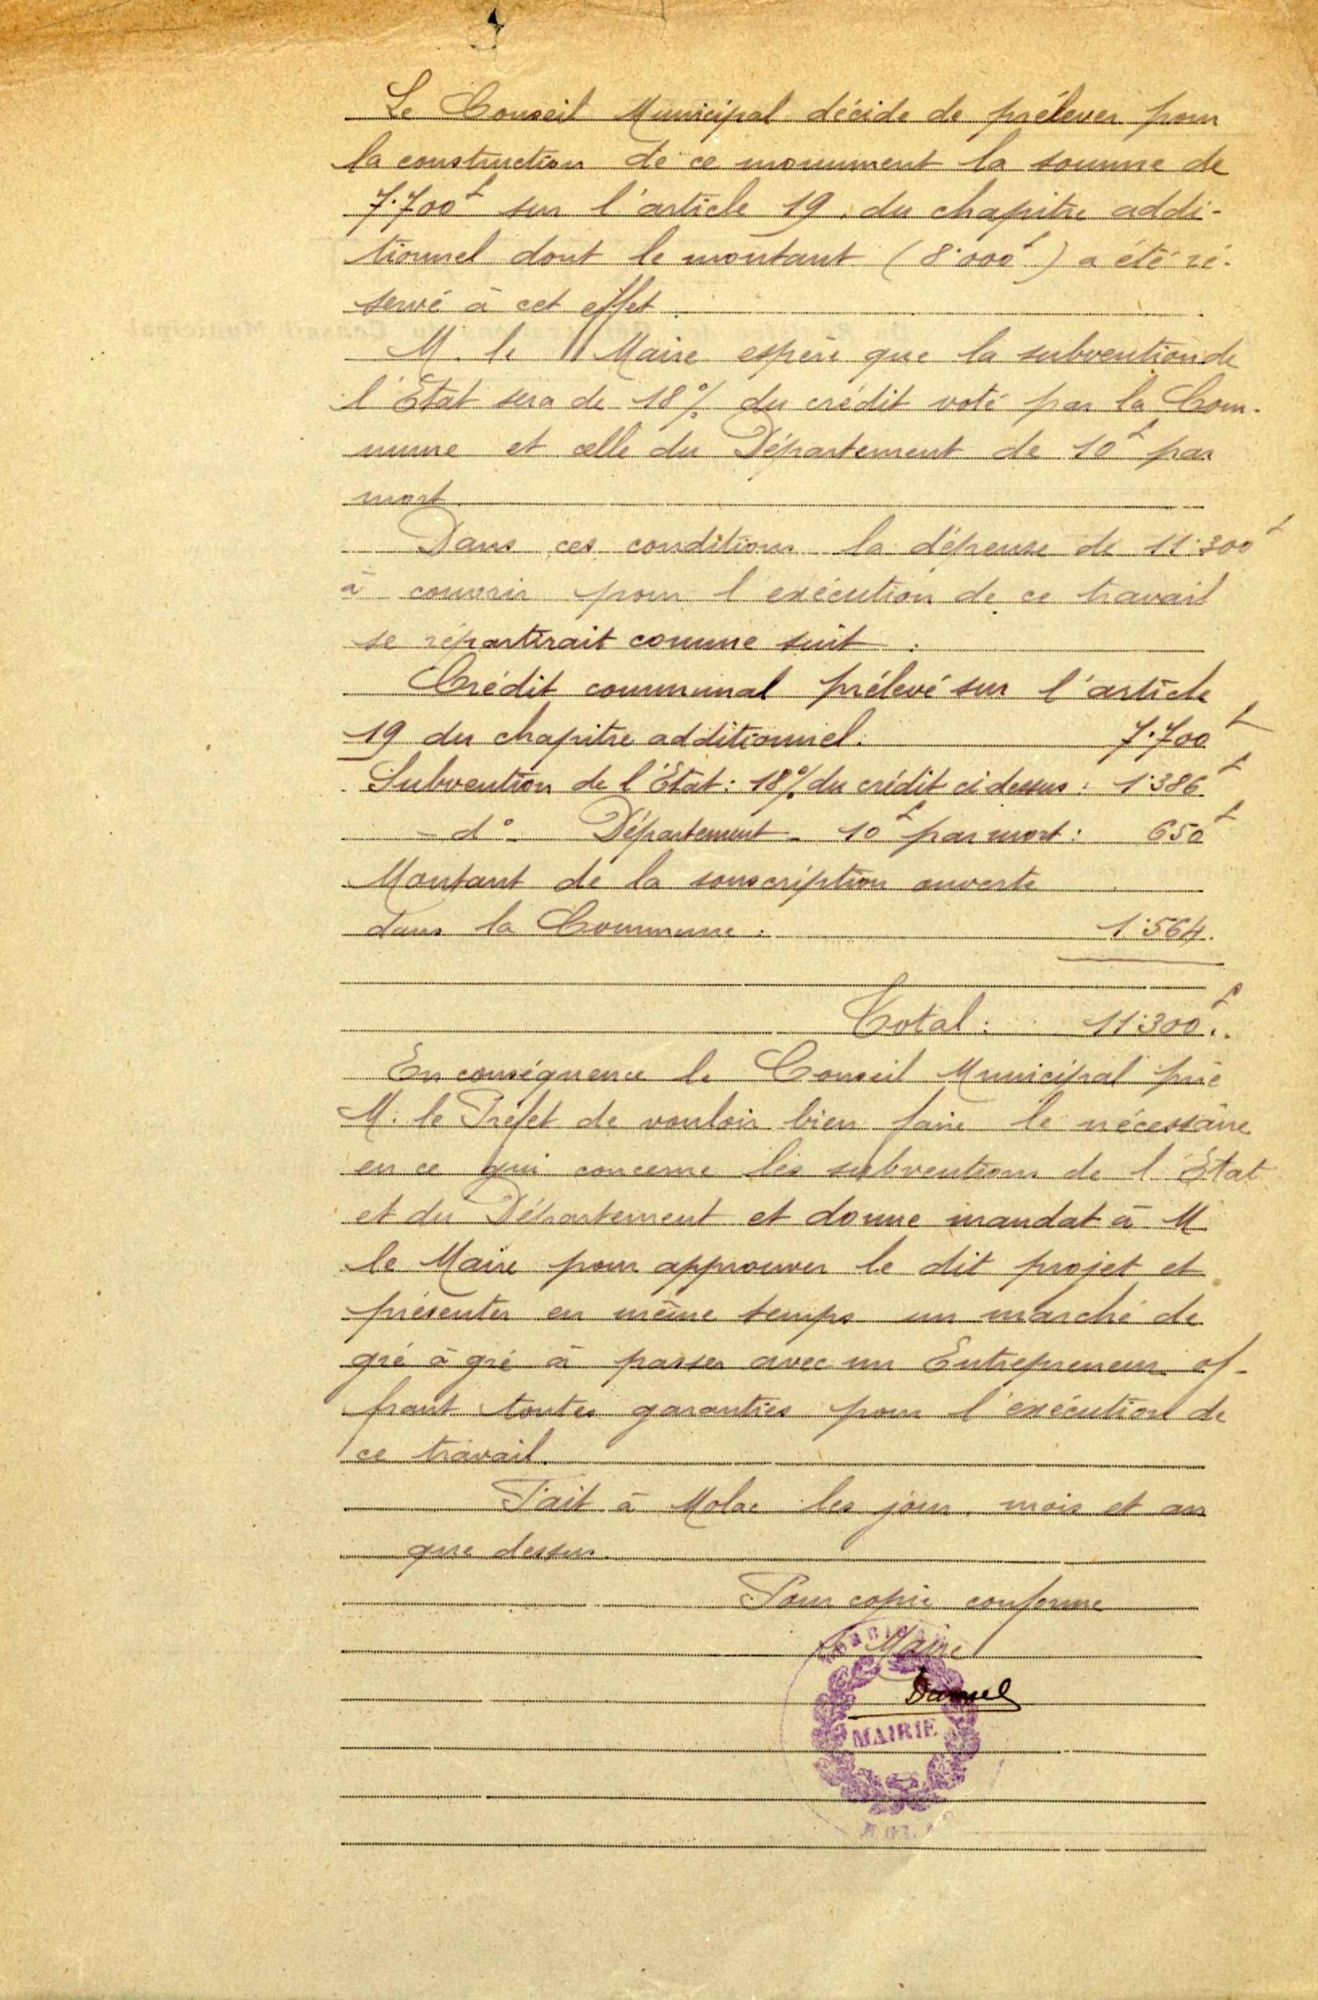 Le Conseil Municipal décide de prélever pour
la construction de ce monument la somme de
7.700f sur l'article 19 du chapitre addi-
tionnel dont le montant (8.000f) a été ré-
servé à cet effet.
M. le Maire espère que la subvention de
l'Etat sera de 18% du crédit voté par la Com-
mune et celle du Département de 10f par
mort
Dans ces conditions la dépense de 11.300f
à couvrir pour l'exécution de ce travail
se répartirait comme suit :
Crédit communal prélevé sur l'article
19 du chapitre additionnel : 7.700f
Subvention de l'Etat : 18% du crédit ci dessus : 1.386f
- d° - Département - 10f par mort : 650f
Montant de la souscription ouverte
dans la Commune : 1.564.
Total : 11.300f.
En conséquence le Conseil Municipal prie
M. le Préfet de vouloir bien faire le nécessaire
en ce qui concerne les subventions de l'Etat
et du Département et donne mandat à M
le Maire pour approuver le dit projet et
présenter en même temps un marché de
gré à gré à passer avec un Entrepreneur of-
frant toutes garanties pour l'exécution de
ce travail.
Fait à Molac les jour, mois et an
que dessus.
Pour copie conforme
Le Maire
MORBIHAN
MAIRIE
MOLAC